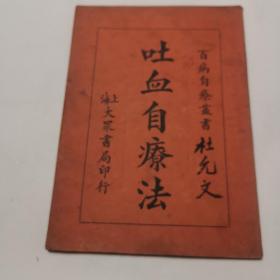 百病自療叢書
杜允文
吐血自療法
上海大眾書局印行